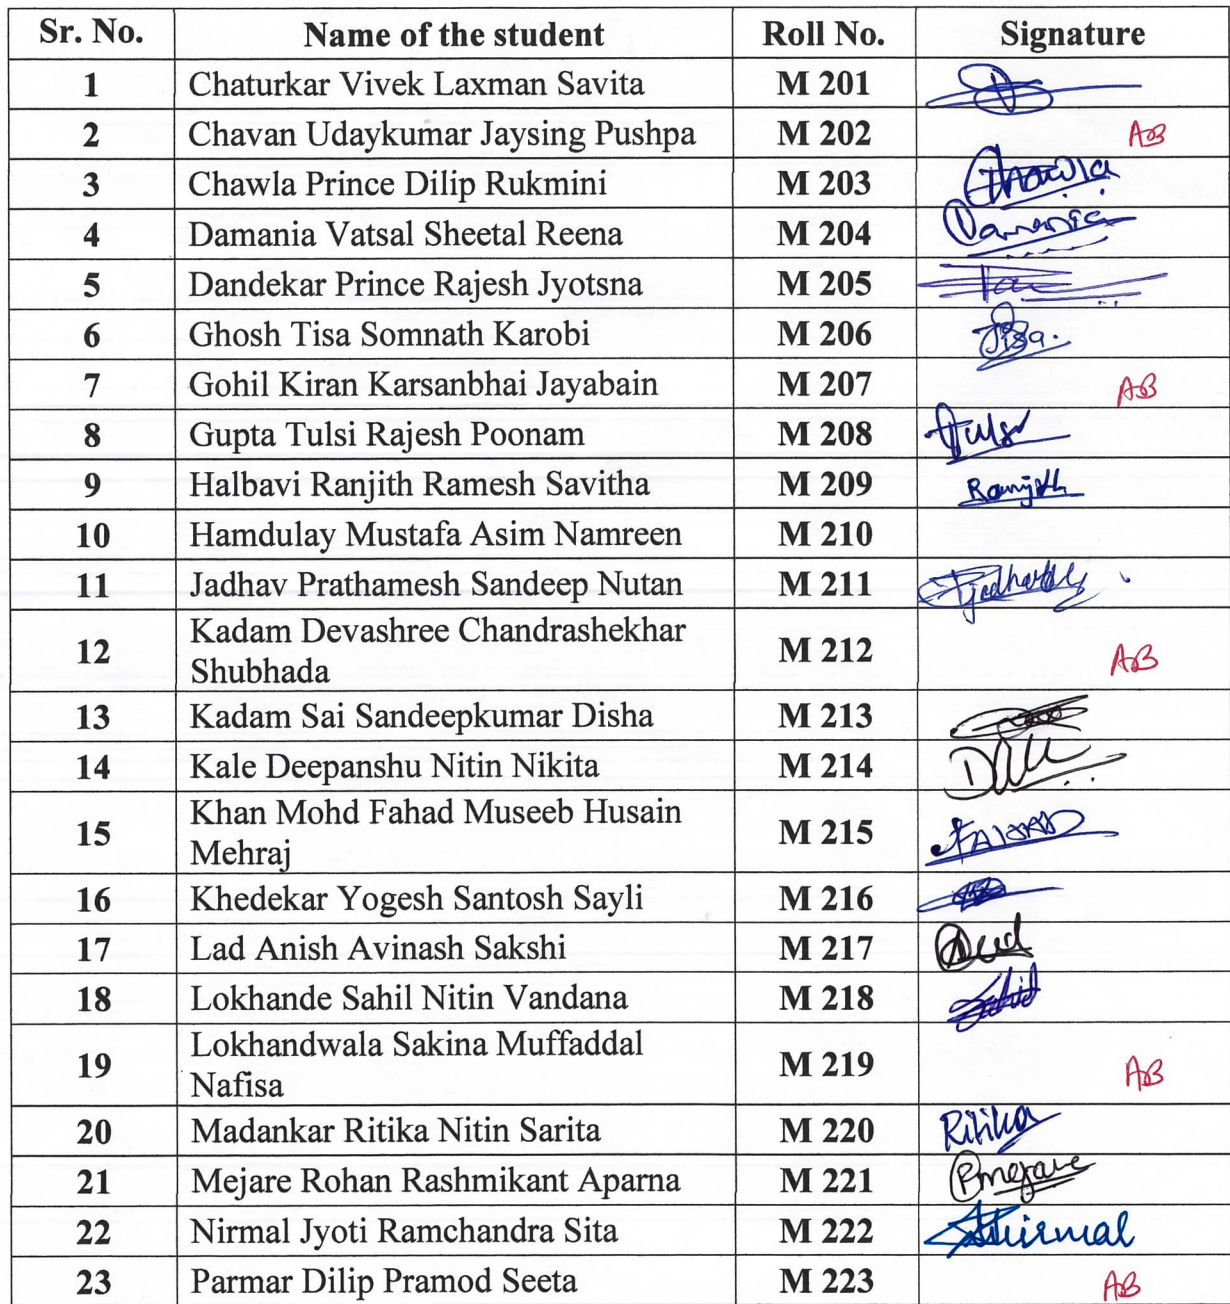 Sr. No. Name of the student Roll No. Signature
1 Chaturkar Vivek Laxman Savita M 201
2 Chavan Udaykumar Jaysing Pushpa M 202 AB
3 Chawla Prince Dilip Rukmini M 203 Chawla
4 Damania Vatsal Sheetal Reena M 204 Damania
5 Dandekar Prince Rajesh Jyotsna M 205
6 Ghosh Tisa Somnath Karobi M 206 Tisa.
7 Gohil Kiran Karsanbhai Jayabain M 207 AB
8 Gupta Tulsi Rajesh Poonam M 208 Tulsi
9 Halbavi Ranjith Ramesh Savitha M 209 Ranjith
10 Hamdulay Mustafa Asim Namreen M 210
11 Jadhav Prathamesh Sandeep Nutan M 211
Kadam Devashree Chandrashekhar
12 M 212 AB
Shubhada
13 Kadam Sai Sandeepkumar Disha M 213
14 Kale Deepanshu Nitin Nikita M 214
Khan Mohd Fahad Museeb Husain
15 M 215
Mehraj
16 Khedekar Yogesh Santosh Sayli M 216
17 Lad Anish Avinash Sakshi M 217
18 Lokhande Sahil Nitin Vandana M 218 Sahil
Lokhandwala Sakina Muffaddal
19 M 219 AB
Nafisa
20 Madankar Ritika Nitin Sarita M 220 Ritika
21 Mejare Rohan Rashmikant Aparna M 221 Rmejare
22 Nirmal Jyoti Ramchandra Sita M 222 Nirmal
23 Parmar Dilip Pramod Seeta M 223 AB